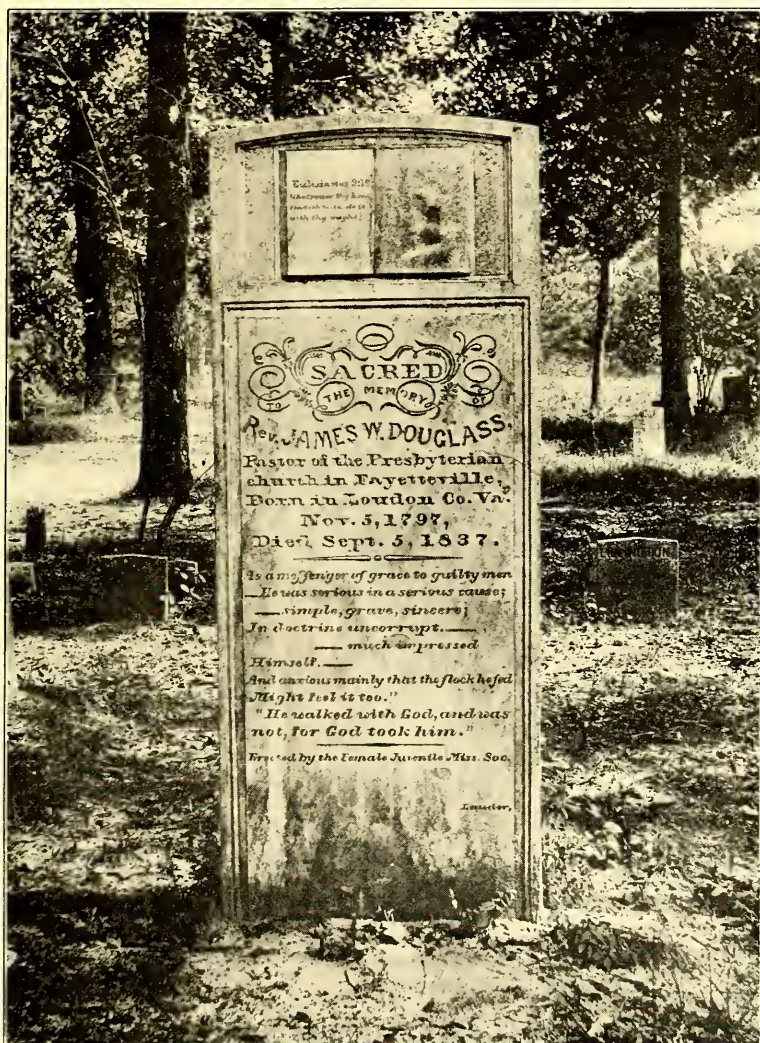 Ecclesiastes 9:10
Whatsoever thy hand
findeth to do, do it
with thy might;
SACRED
TO THE MEMORY OF
Rev. JAMES W. DOUGLASS,
Pastor of the Presbyterian
church in Fayetteville,
Born in Loudon Co. Va.
Nov. 5, 1797,
Died Sept. 5, 1837.
As a messenger of grace to guilty men
He was serious in a serious cause;
simple, grave, sincere;
In doctrine uncorrupt.
much impressed
Himself.
And anxious mainly that the flock he fed
Might feel it too."
"He walked with God, and was
not, for God took him."
Erected by the Female Juvenile Miss. Soc.
Lauder,